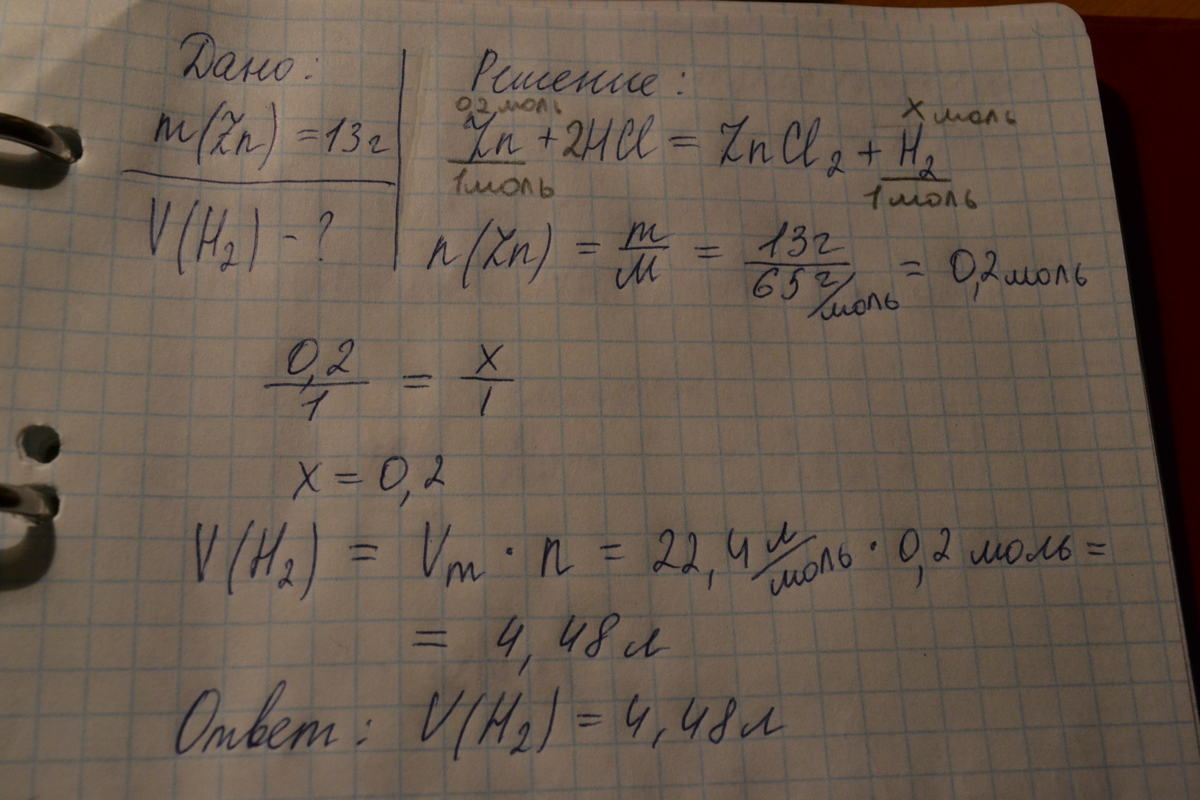 Дано:
m(Zn) = 13г
V(H₂) - ?
Решение:
0,2 моль x моль
Zn + 2HCl = ZnCl₂ + H₂
1 моль 1 моль
n(Zn) = m/M = 13г/65 г/моль = 0,2 моль
0,2/1 = x/1
x = 0,2
V(H₂) = Vm · n = 22,4 л/моль · 0,2 моль =
= 4,48 л
Ответ: V(H₂) = 4,48 л